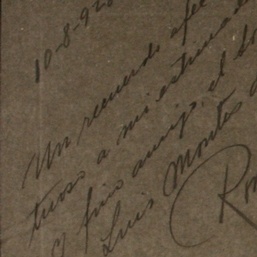 10-8-92
Un recuerdo afec
tuoso a mi estimad
y fino amigo, el
Luis Montes
Rom